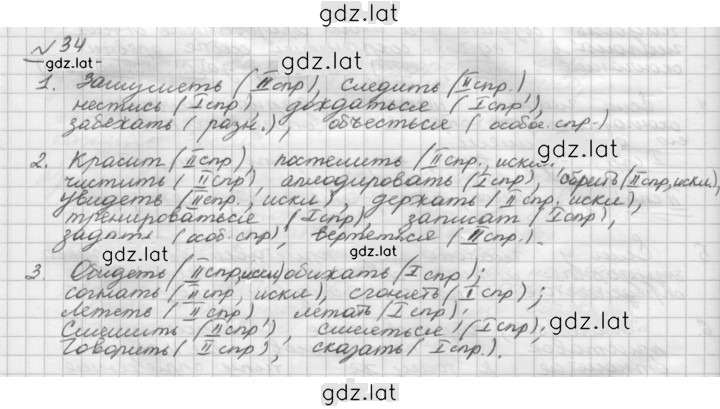 gdz.lat
№34
gdz.lat
gdz.lat
1. Зашуметь (II спр), следить (II спр.)
нестись (I спр), дождаться (I спр),
забежать (разн.), объесться (особое. спр.)
gdz.lat
2. Красит (II спр), постелить (II спр., искл.)
чистить (II спр), аплодировать (I спр), обреить (II спр, искл.),
увидеть (II спр., искл), держать (II спр. искл),
тренироваться (I спр) записат (I спр),
задать (особ. спр), вертеться (II спр).
gdz.lat
gdz.lat
3. Обидеть (II спр, искл) обижать (I спр);
согнать (II спр, искл), сгонять (I спр);
Лететь (II спр) летать (I спр);
Смешить (II спр), смеяться (I спр);
gdz.lat
Говорить (II спр), сказать (I спр).
gdz.lat